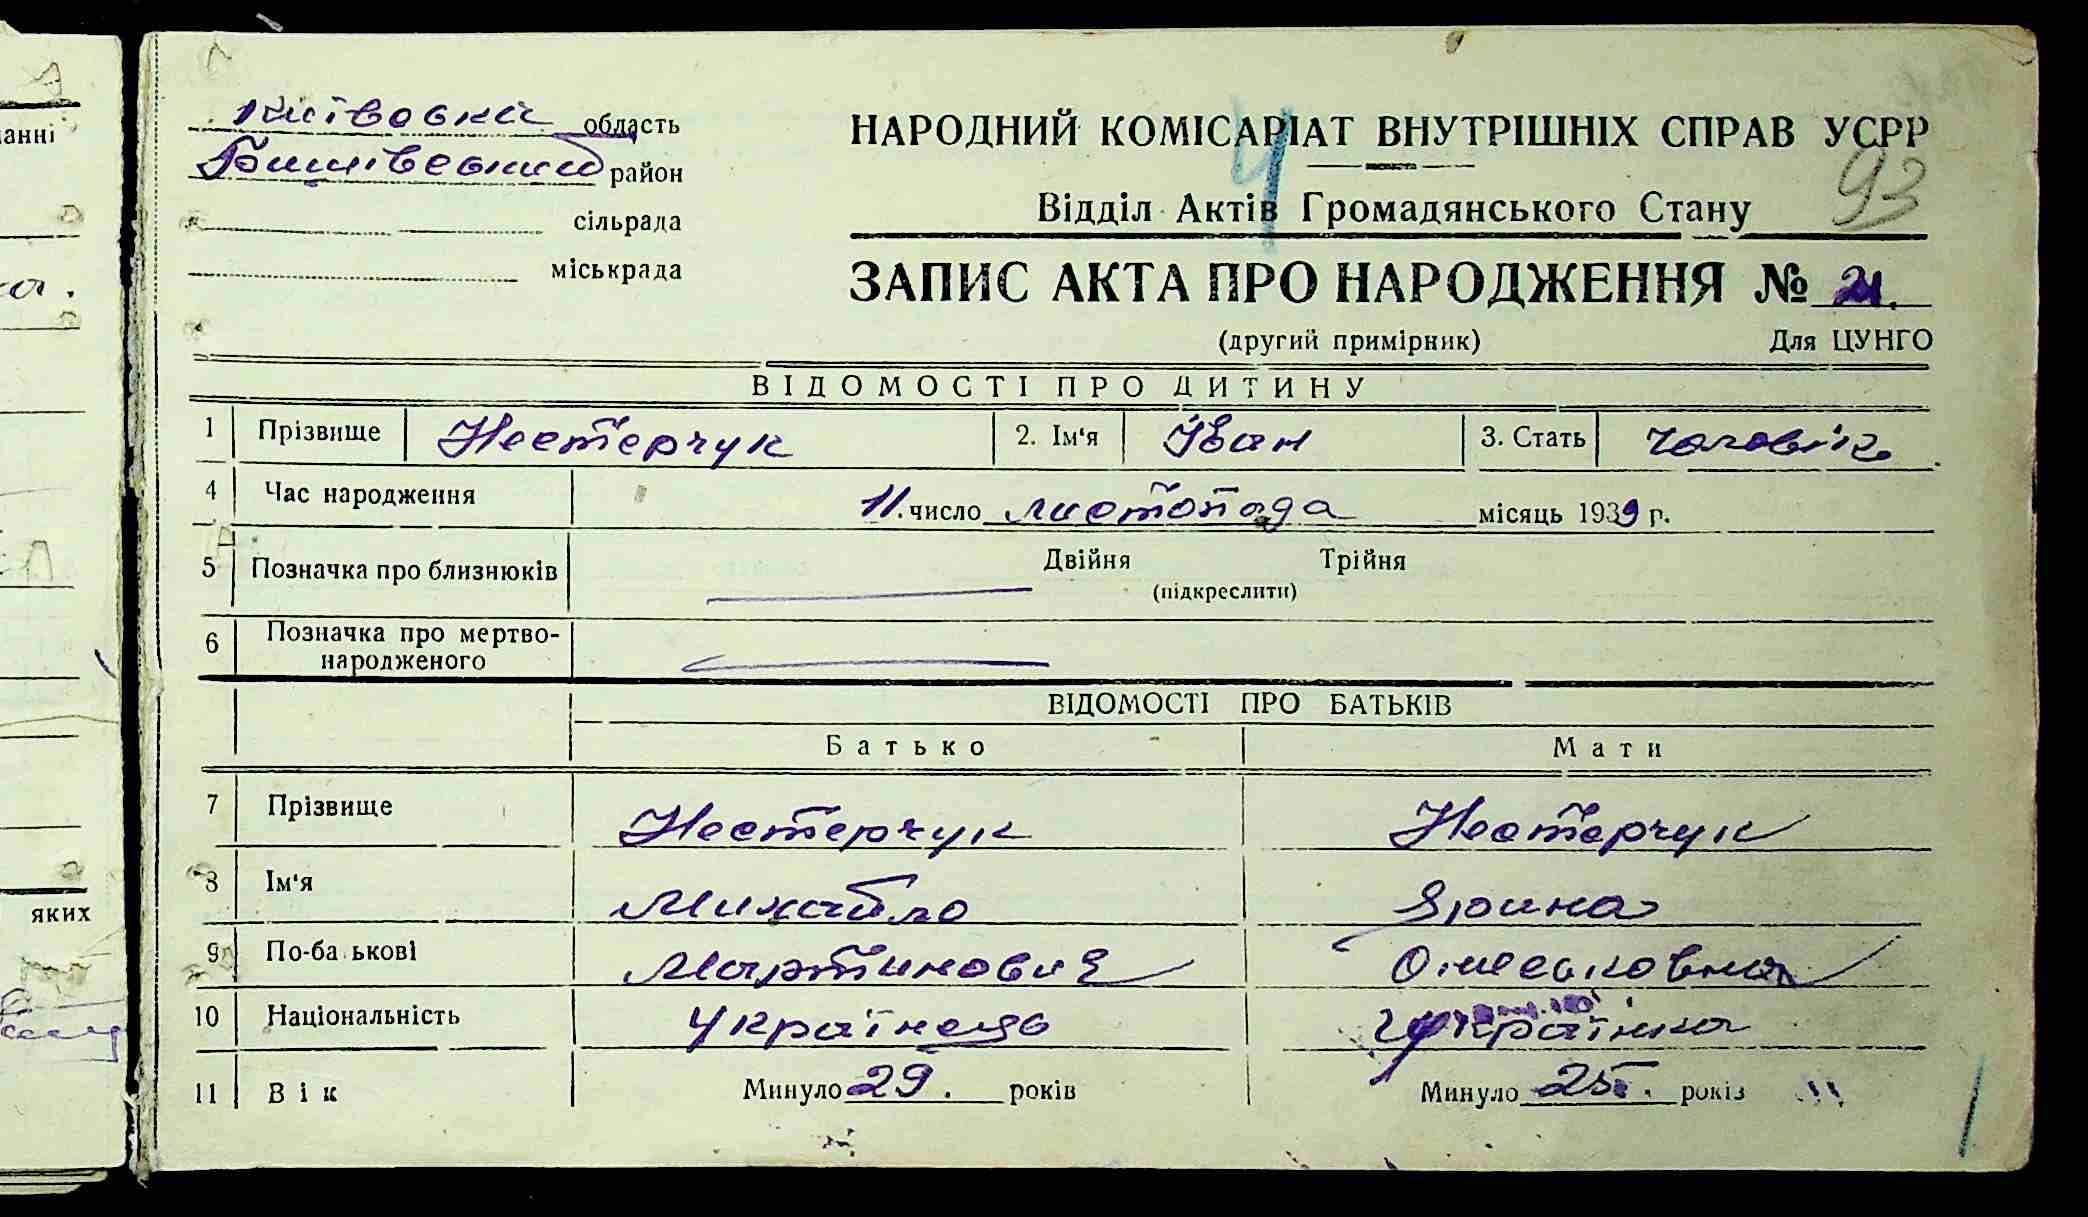 Київська область
НАРОДНИЙ КОМІСАРІАТ ВНУТРІШНІХ СПРАВ УСРР
район
93
сільрада
Відділ Актів Громадянського Стану
міськрада
ЗАПИС АКТА ПРО НАРОДЖЕННЯ № 21.
(другий примірник) Для ЦУНГО
ВІДОМОСТІ ПРО ДИТИНУ
1 Прізвище Нестерчук 2. Ім'я Іван 3. Стать чоловік
4 Час народження 11. число листопада місяць 1939 р.
5 Позначка про близнюків Двійня Трійня
(підкреслити)
6 Позначка про мертво-
народженого
ВІДОМОСТІ ПРО БАТЬКІВ
Батько Мати
7 Прізвище Нестерчук Нестерчук
8 Ім'я Михайло Ярина
9 По-ба ькові Мартинович
10 Національність Українець Українка
11 Вік Минуло 29. років Минуло 25. років
анні
яких